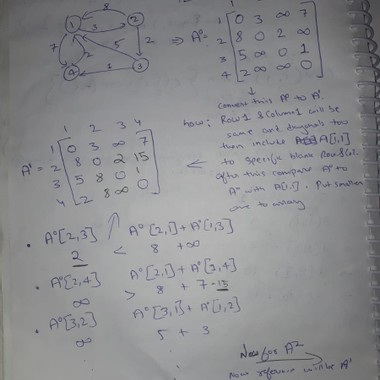 8
1 2
3
7 2 5 2
4 1 3
⇒ A⁰ =
1
1 0 3 ∞ 7
2 8 0 2 ∞
3 5 ∞ 0 1
4 2 ∞ ∞ 0
convert this A⁰ to A¹.
how: Row 1 & Column 1 will be
same and diagonals too
then include A[1,1]
to specific blank Row & Col
after this compare A⁰ to
A⁰ with A[1,1]. Put smaller
one to array
1 2 3 4
A¹ =
1 0 3 ∞ 7
2 8 0 2 15
3 5 8 0 1
4 2 8 ∞ 0
• A⁰[2,3] A⁰[2,1] + A⁰[1,3]
2 < 8 + ∞
• A⁰[2,4] A⁰[2,1] + A⁰[1,4]
∞ > 8 + 7 = 15
• A⁰[3,2] A⁰[3,1] + A⁰[1,2]
∞ 5 + 3
Now for A²
Now reference will be A¹